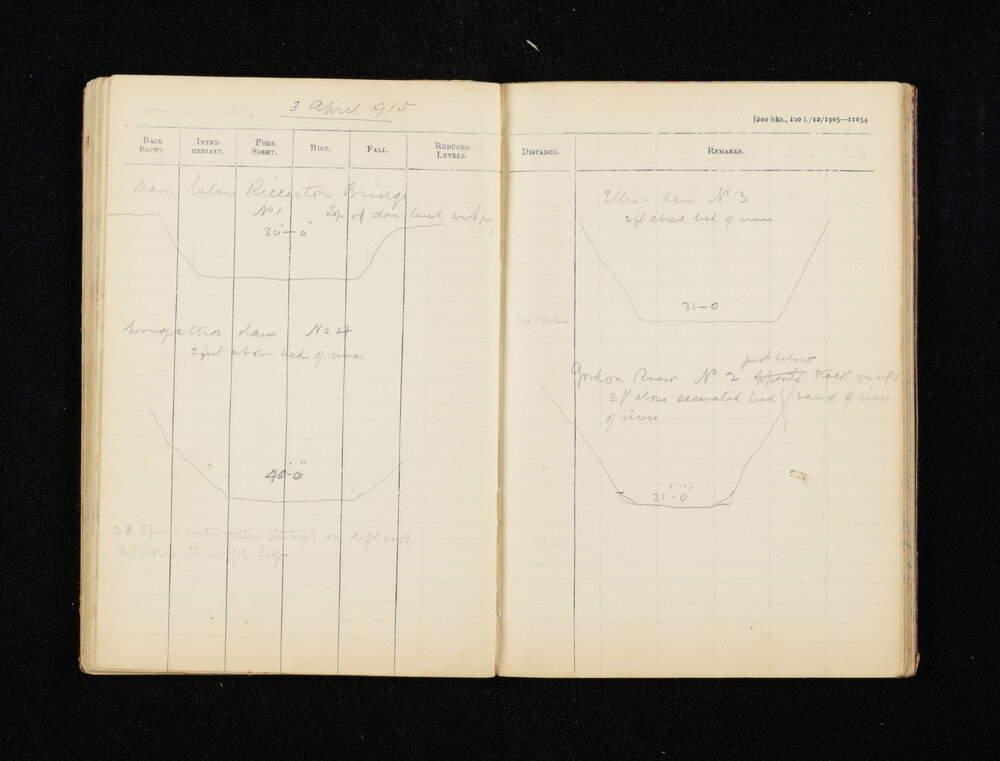 3 April 1915
BACK SIGHT. INTERMEDIATE. FORE SIGHT. RISE. FALL. REDUCED LEVELS.
Dam below Riccarton Bridge
No 1 Top of dam level
30'-0"
dam No 4
2 feet above bed of river
40'-0"
through on left bank
through logs
[200 bks., 100 l./12/1905—11054
DISTANCE. REMARKS.
Ellis's dam No 3
2 ft above bed of river
31-0
just below
Gordon No 2 opposite
2 ft above excavated bed bank of river
of river
31'-0"